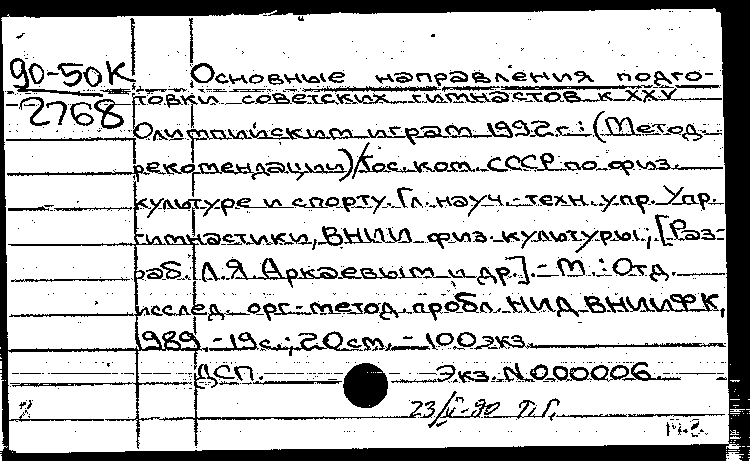 90-50К
2768
Основные направления подго-
товки советских гимнастов к XXV
Олимпийским играм 1992г.: (Метод.
рекомендации)/Гос. ком. СССР по физ.
культуре и спорту. Гл. науч.-техн. упр. Упр.
гимнастики, ВНИИ физ. культуры; [Раз-
раб. Л.Я. Аркаевым и др.].- М.: Отд.
исслед. орг-метод. пробл. НИД ВНИИФК,
1989.-19с.; 20см. - 100экз.
ДСП. Экз. N 000006
23/V-90 П.Г.